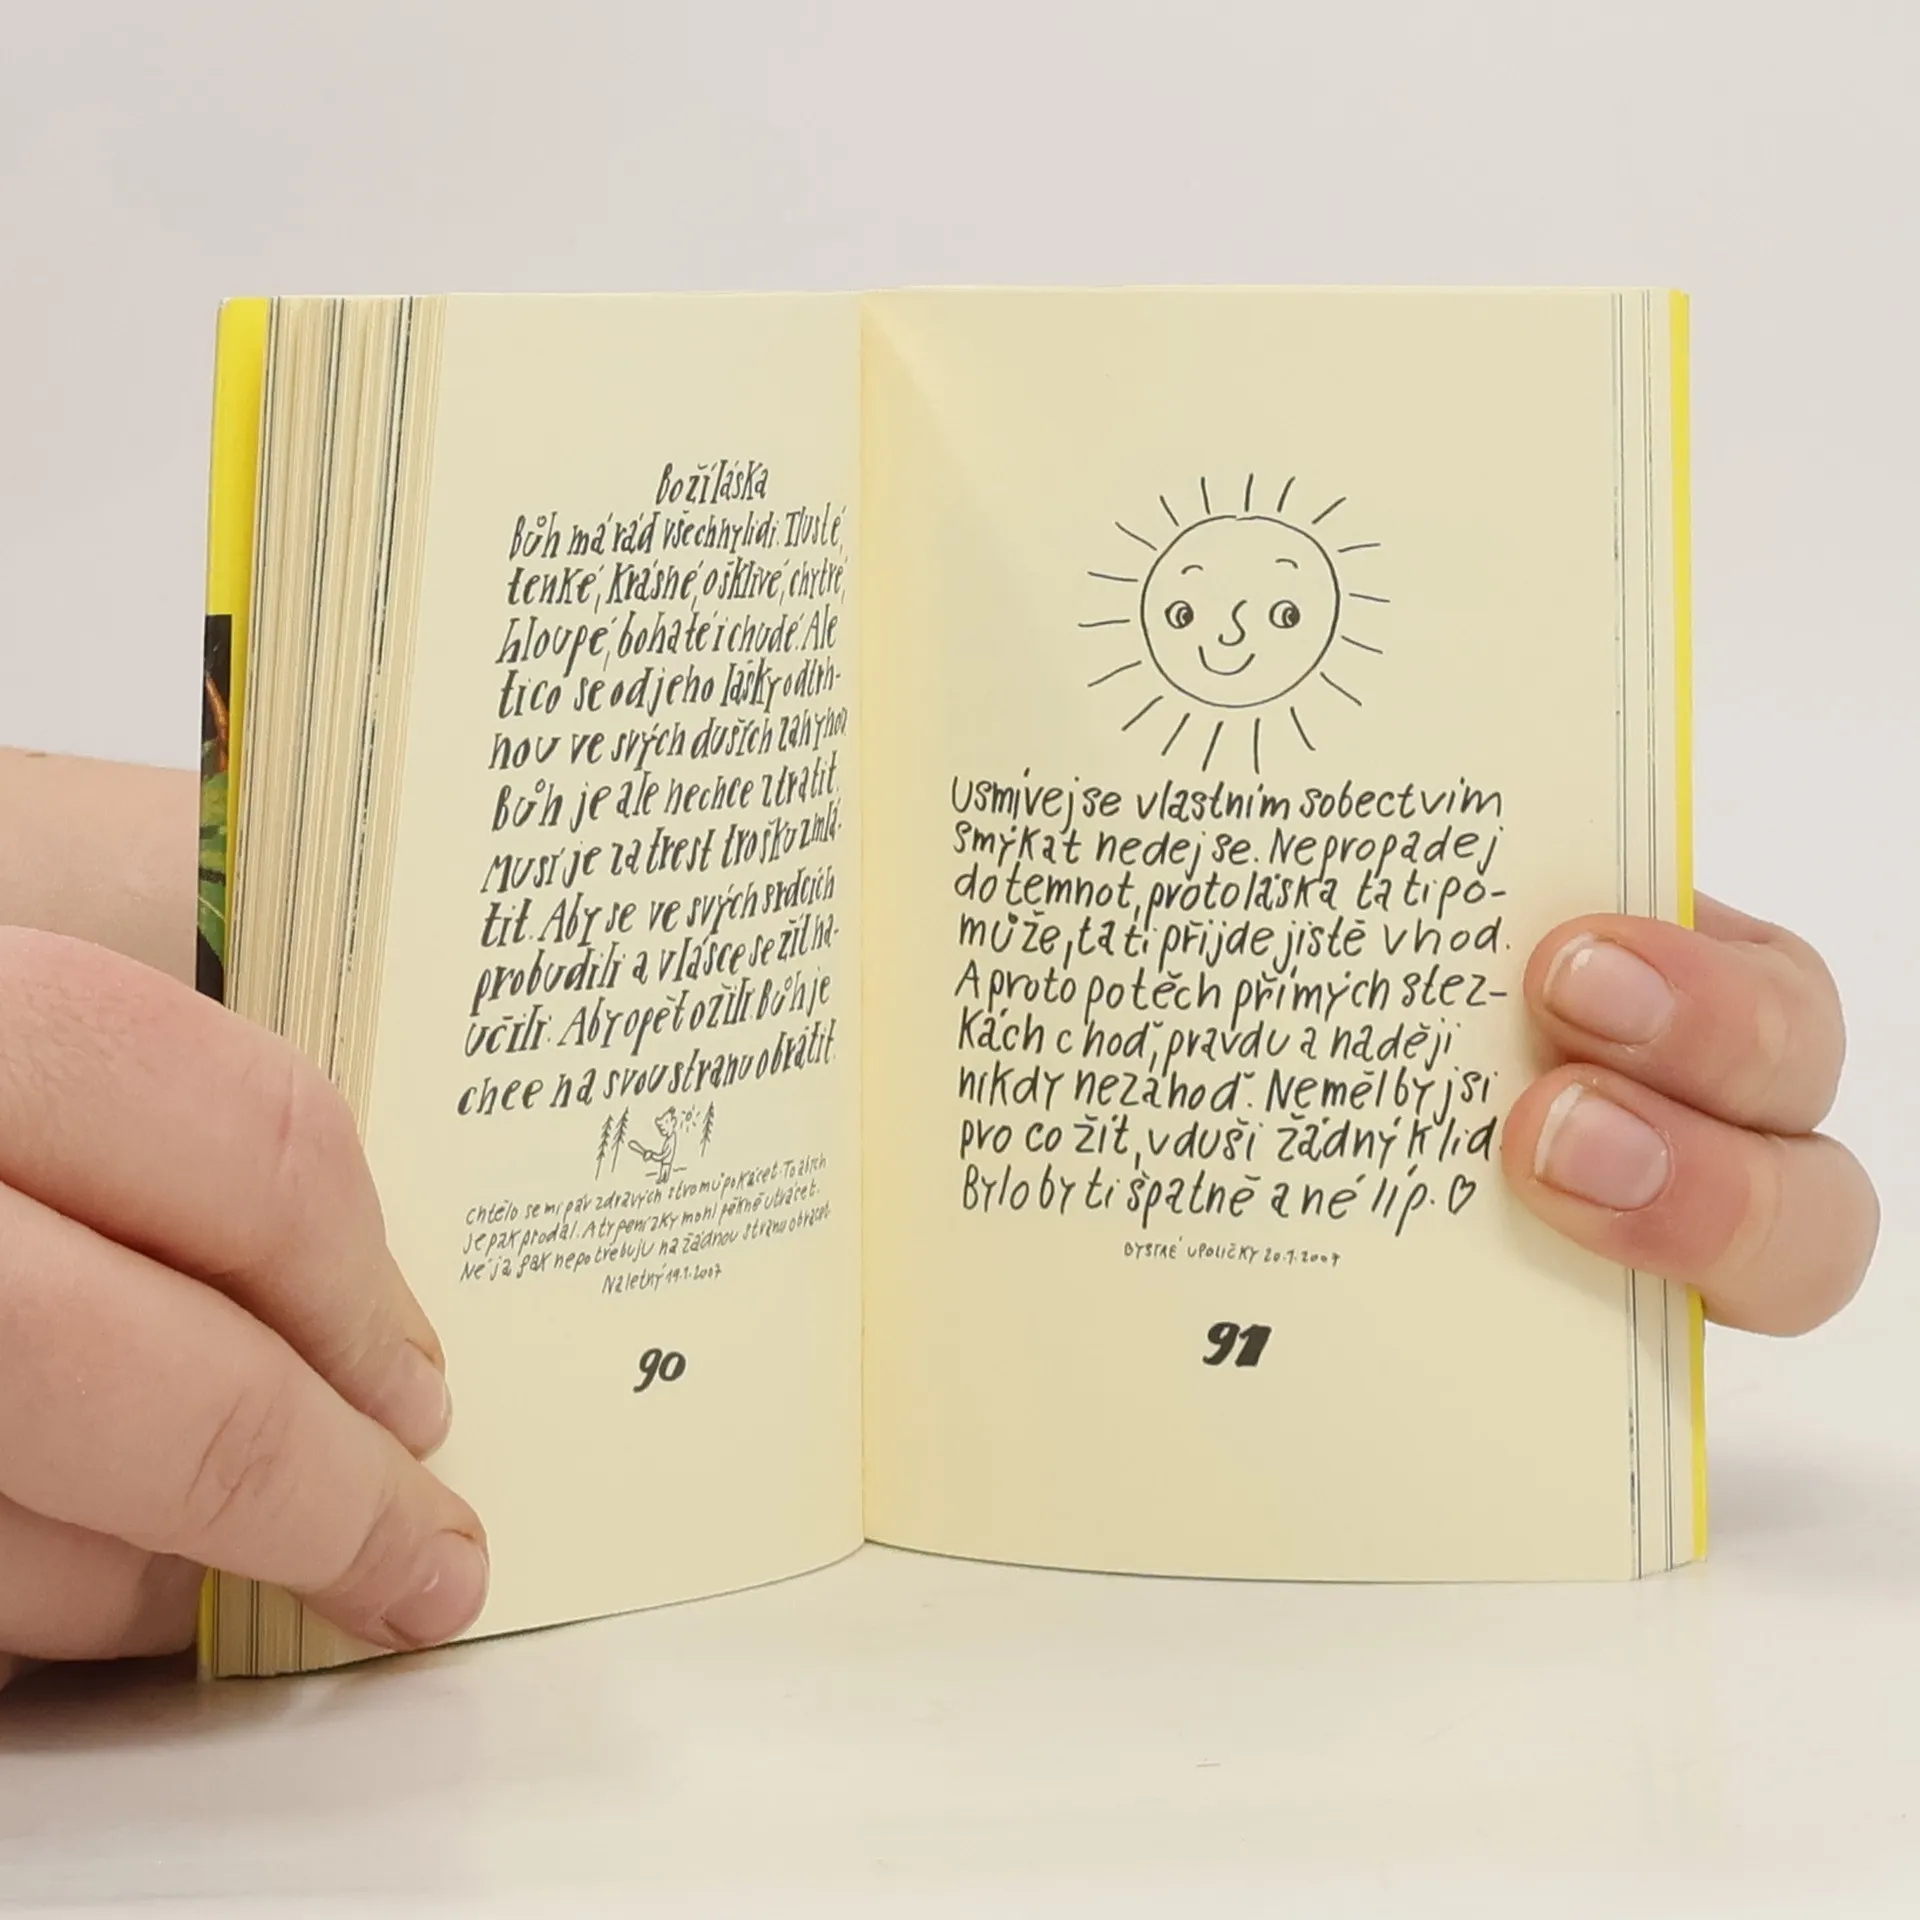 Boží láska
Bůh má rád všechny lidi. Tlusté,
tenké, krásné, ošklivé, chytré,
hloupé, bohaté i chudé. Ale
ti co se od jeho lásky odtrh-
nou ve svých duších zahynou.
Bůh je ale nechce ztratit.
Musí je za trest trošku zmlá-
tit. Aby se ve svých srdcích
probudili a v lásce se žít na-
učili. Aby opět ožili Bůh je
chce na svou stranu obrátit.
Chtělo se mi pár zdravých stromů pokácet. To abych
je pak prodal. A ty penízky mohl pěkně utrácet.
Né já pak nepotřebuju na žádnou stranu obracet.
Naletný 19.1.2007
90
Usmívej se vlastním sobectvím
smýkat nedej se. Nepropadej
do temnot, proto láska ta ti po-
může, ta ti přijde jistě vhod.
A proto po těch přímých stez-
kách choď, pravdu a naději
nikdy nezahoď. Neměl by jsi
pro co žít, v duši žádný klid.
Bylo by ti špatně a né líp. ♡
Bystré u Poličky 20.1.2007
91